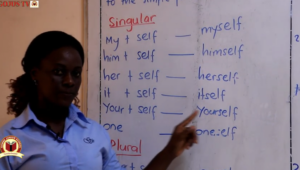 Singular
My + self — myself
him + self — himself
her + self — herself
it + self — itself
Your + self — Yourself
one — oneself
Plural